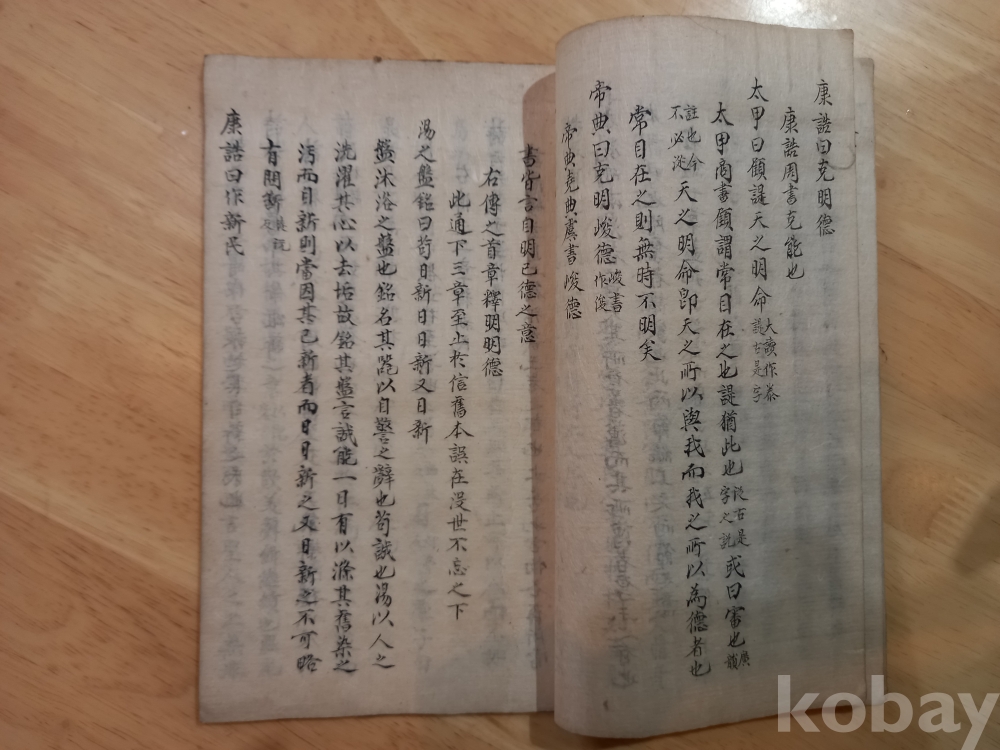 康誥曰克明德
康誥周書克能也
太甲曰顧諟天之明命大讀作泰諟古是字
太甲商書顧謂常目在之也諟猶此也或曰審也廣韻
註也今不必從天之明命卽天之所以與我而我之所以為德者也
常目在之則無時不明矣
帝典曰克明峻德峻書作俊
帝典堯典虞書峻德
書皆言自明已德之意
右傳之首章釋明明德
此通下三章至止於信舊本誤在沒世不忘之下
湯之盤銘曰苟日新日日新又日新
盤沐浴之盤也銘名其器以自警之辭也苟誠也湯以人之
洗濯其心以去垢故銘其盤言誠能一日有以滌其舊染之
汚而自新則當因其已新者而日日新之又日新之不可略
有間斷
康誥曰作新民
kobay